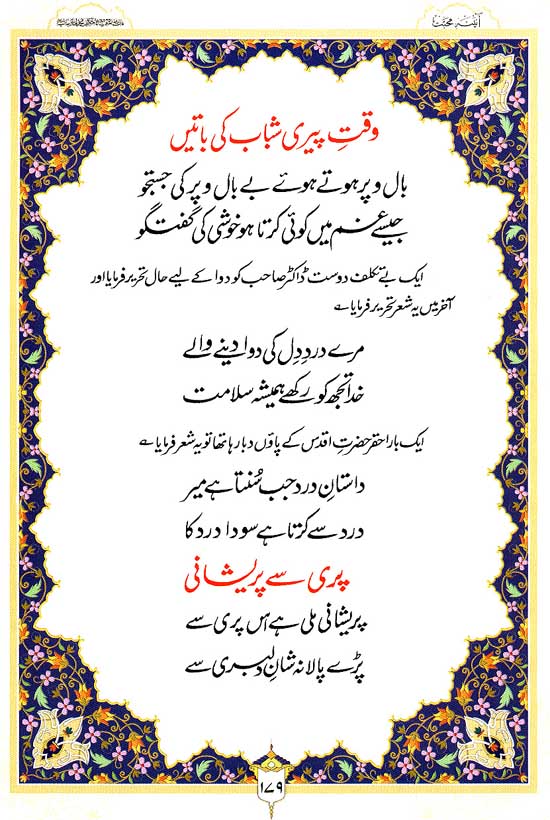 آئینۂ محبت
وقتِ پیری شباب کی باتیں
بال و پر ہوتے ہوئے بے بال و پر کی جستجو
جیسے غم میں کوئی کرتا ہو خوشی کی گفتگو
ایک بے تکلف دوست ڈاکٹر صاحب کو دوا کے لیے حال تحریر فرمایا اور
آخر میں یہ شعر تحریر فرمایا ؎
مرے دردِ دِل کی دوا دینے والے
خدا تجھ کو رکھے ہمیشہ سلامت
ایک بار احقر حضرتِ اقدس کے پاؤں دبا رہا تھا تو یہ شعر فرمایا ؎
داستانِ درد جب سُنتا ہے میرؔ
درد سے کرتا ہے سودا درد کا
پری سے پریشانی
پریشانی ملی ہے اس پری سے
پڑے پالا نہ شانِ دلبری سے
۱۷۹